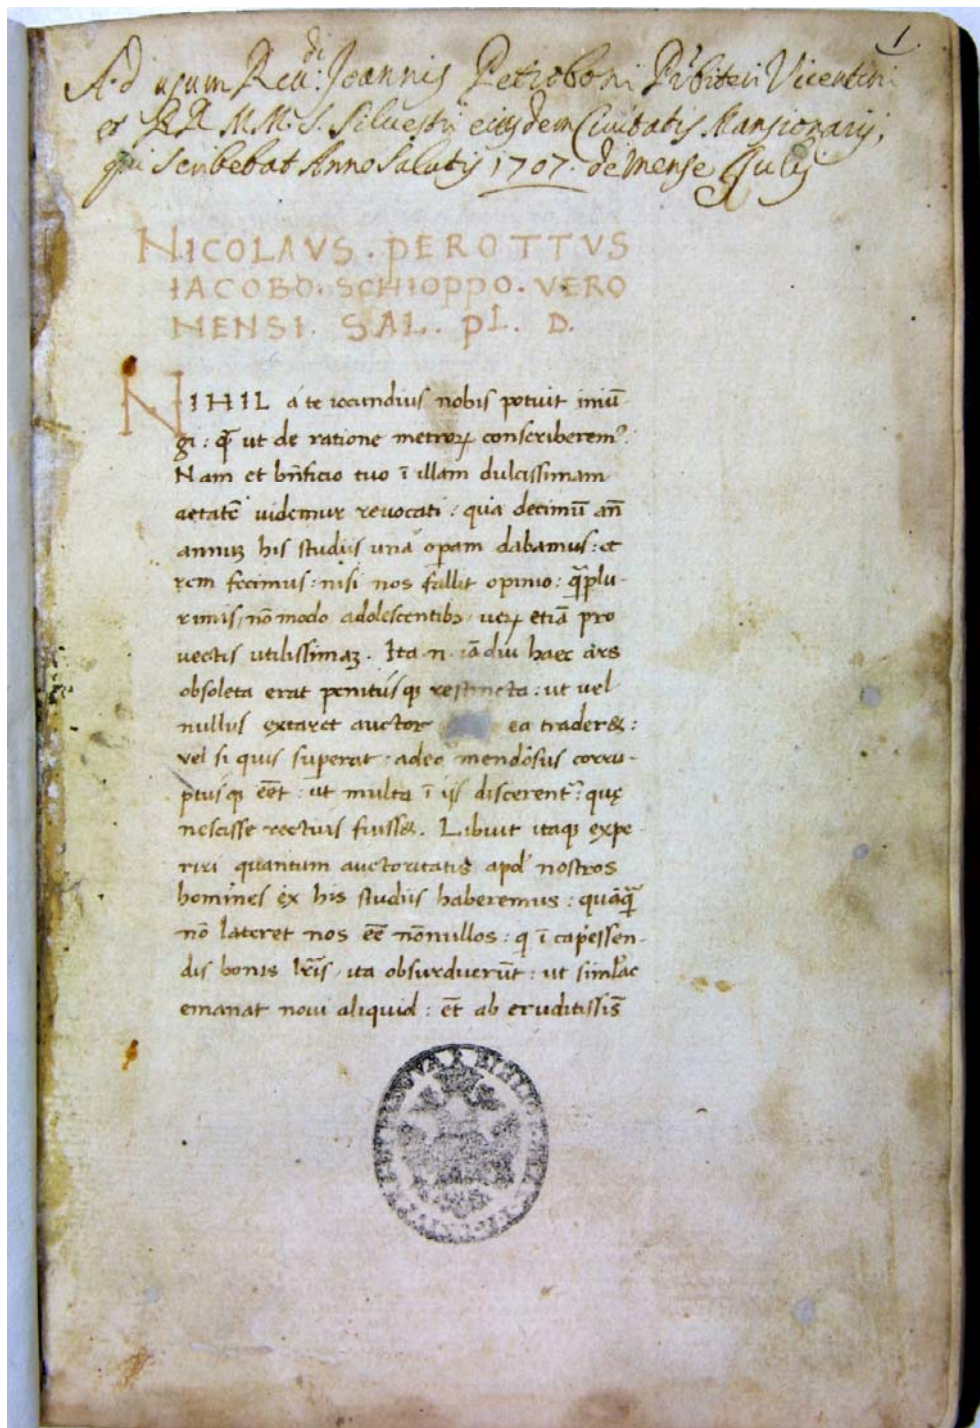 1
Ad usum Reu:di Joannis Petroboni Pr̃biteri Vicentini
et RR MM. S. Siluestri eiusdem Ciuitatis Mansionarij,
qui scribebat Anno Salutis 1707. de mense Julij
NICOLAVS . PEROTTVS
IACOBO . SCHIOPPO . VERO
NENSI . SAL . PL . D.
NIHIL á te iocundius nobis potuit iniũ
gi : q̃ ut de ratione metroꝝ conscriberemꝰ.
Nam et bñficio tuo ĩ illam dulcissimam
aetatẽ uidemur reuocati : qua decimũ añ
annuꝫ his studiis una oꝑam dabamus : et
rem fecimus : nisi nos fallit opinio : q̃plu-
rimis, nõ modo adolescentibꝫ, ueꝝ etiã pro
uectis utilissimaꝫ . Ita .n. iã diu haec ars
obsoleta erat penitusqꝫ restincta : ut uel
nullus extaret auctor ea traderet :
vel si quis superat : adeo mendosus corru-
ptusqꝫ eẽt : ut multa ĩ ijs discerent᷑ : quę
nescisse rectius fuisset . Libuit itaqꝫ expe
riri quantum auctoritatis apd' nostros
homines ex his studiis haberemus : quãq̃
nõ lateret nos eẽ nõnullos : q ĩ capessen-
dis bonis lr̃is, ita obsurduerũt : ut siml'ac
emanat noui aliquid : et̃ ab eruditissis̃